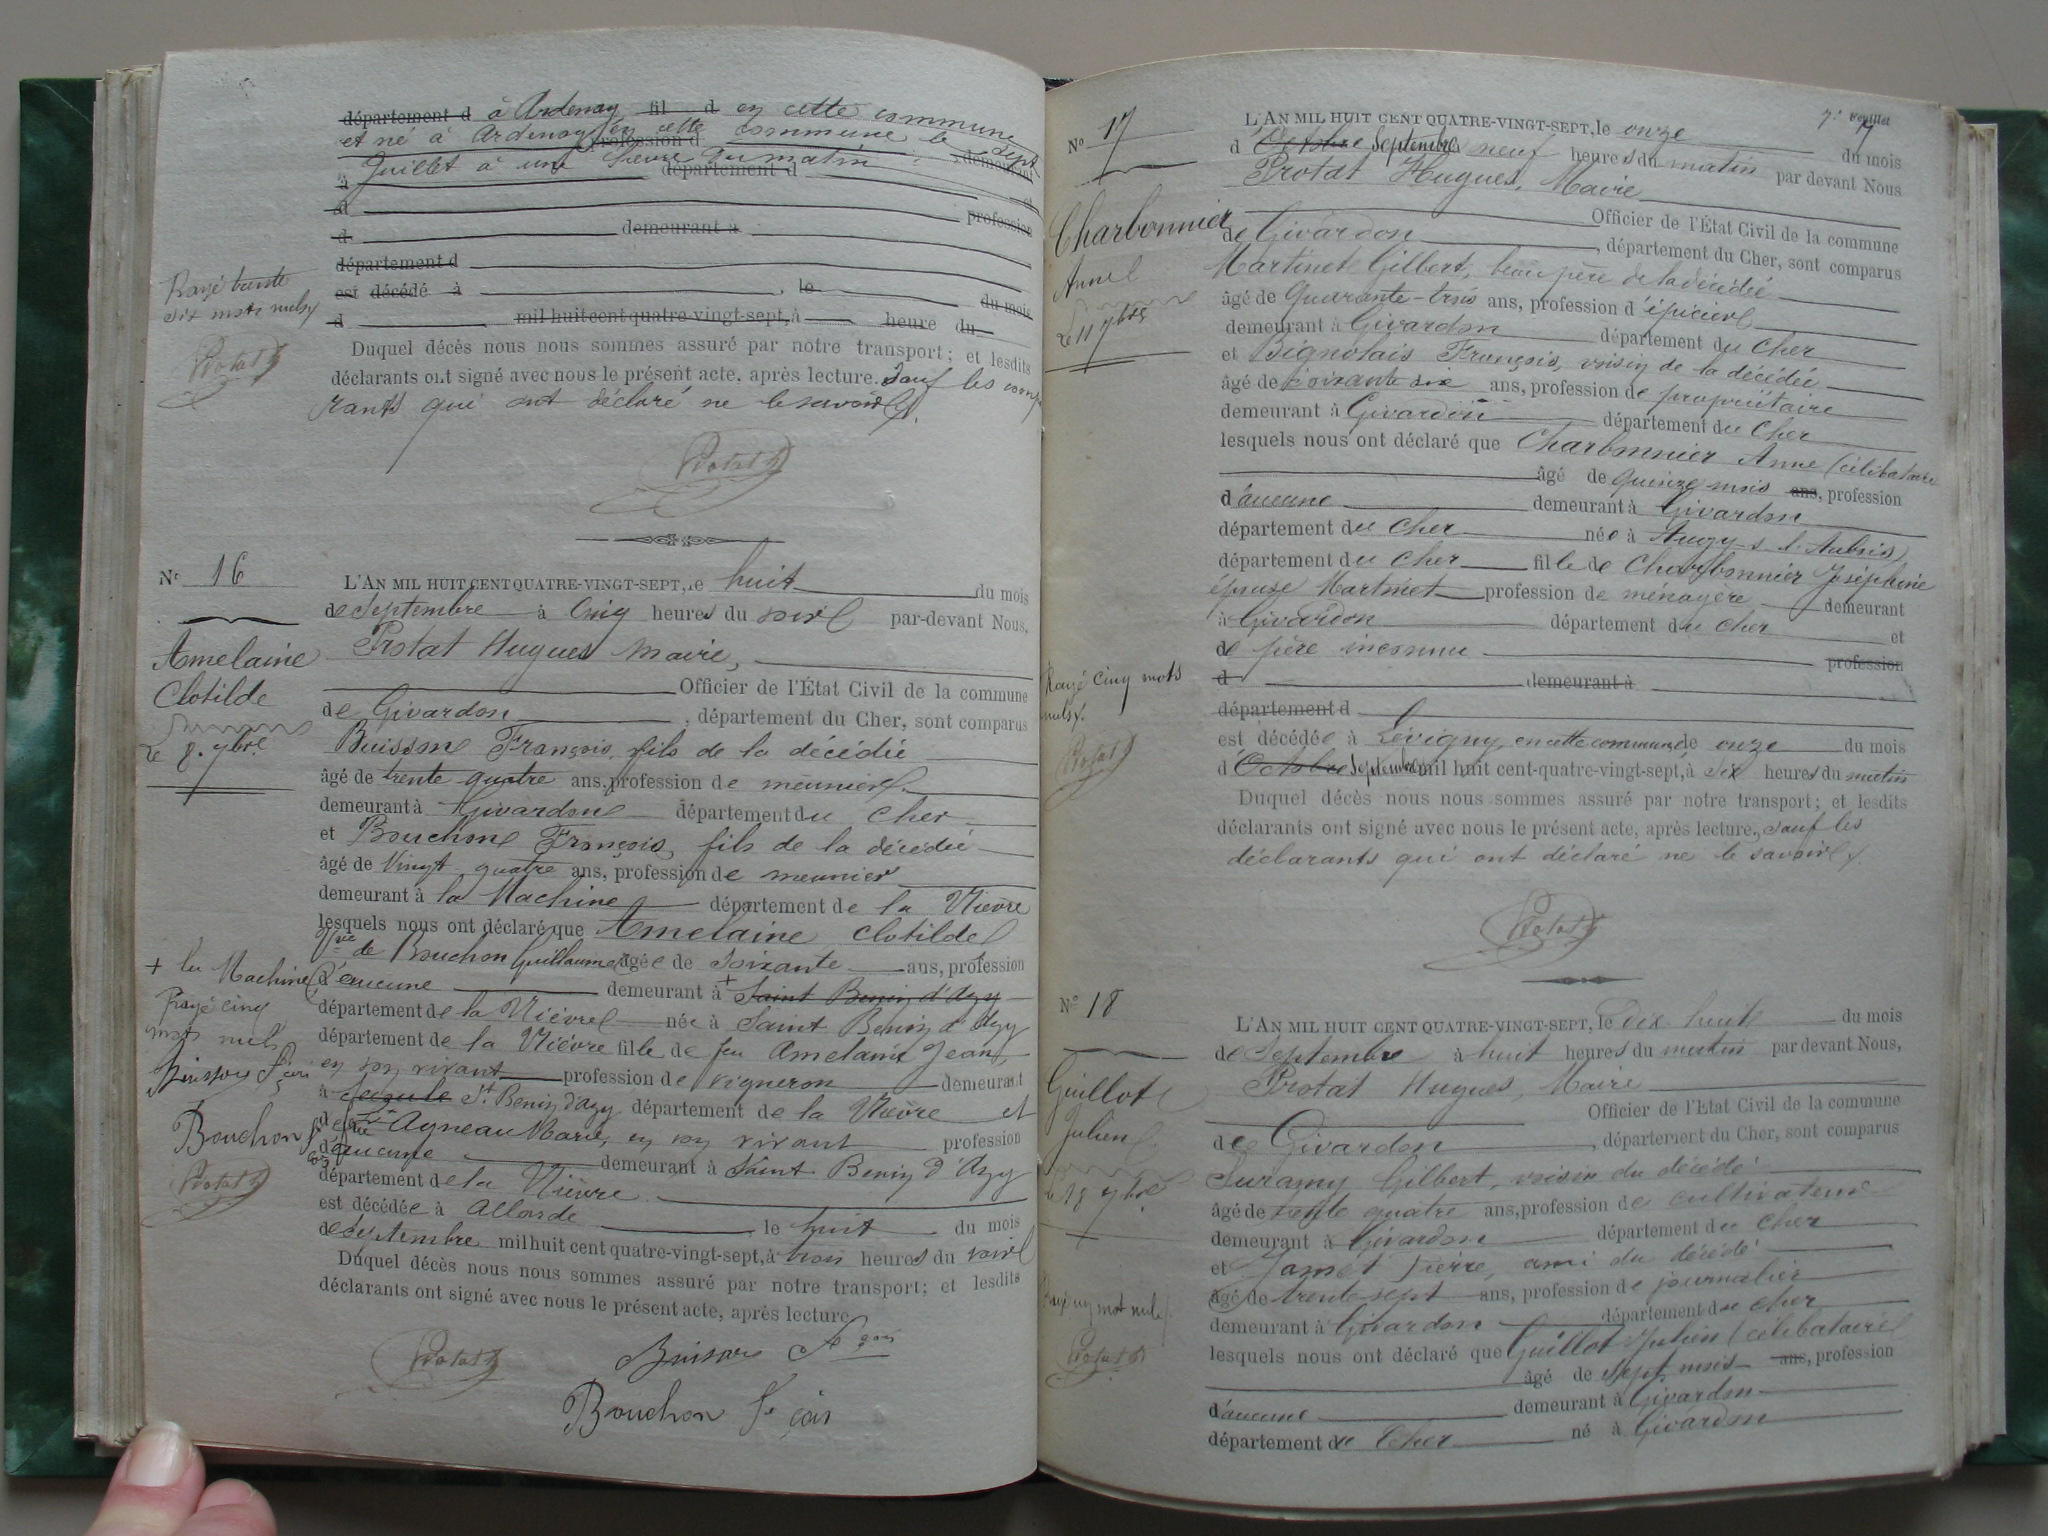 département d à Ardenay fil d en cette commune
et né à Ardenay en cette commune le sept
profession d demeurant
à Juillet à une heure du matin département d
et
d profession
d demeurant à
département d
est décédé à , le du mois
d mil huit cent quatre-vingt-sept, à heure du
Rayé trente
six mots nuls
Protat h
Duquel décès nous nous sommes assuré par notre transport ; et lesdits
déclarants ont signé avec nous le présent acte, après lecture. Sauf les comp
rants qui ont déclaré ne le savoir
Protat h
No 16
Amelaine
Clotilde
Le 8. 7bre
L'AN MIL HUIT CENT QUATRE-VINGT-SEPT, le huit du mois
de Septembre à Cinq heures du soir par-devant Nous,
Protat Hugues Maire,
Officier de l'État Civil de la commune
de Givardon , département du Cher, sont comparus
Buisson François, fils de la décédée
âgé de trente quatre ans, profession de meunier
demeurant à Givardon département du Cher
et Bouchon François, fils de la décédée
âgé de Vingt quatre ans, profession de meunier
demeurant à la Machine département de la Nièvre
lesquels nous ont déclaré que Amelaine Clotilde
Vve de Bouchon Guillaume âgée de Soixante ans, profession
d'aucune demeurant à + Saint Benin d'Azy
département de la Nièvre née à Saint Benin d'Azy
département de la Nièvre fille de feu Amelaine Jean,
en son vivant profession de vigneron demeurant
à St Benin d'Azy département de la Nièvre et
de Agneau Marie, en son vivant profession
d'aucune demeurant à Saint Benin d'Azy
département de la Nièvre
est décédée à Allorde le huit du mois
de Septembre mil huit cent quatre-vingt-sept, à trois heures du soir
Duquel décès nous nous sommes assuré par notre transport ; et lesdits
déclarants ont signé avec nous le présent acte, après lecture
+ la Machine
Rayé cinq
mots nuls
Buisson Fçois
Bouchon Fçois
Protat h
Protat h
Buisson Fçois
Bouchon Fe çois
7e Feuillet
7
No 17
Charbonnier
Anne
Le 11 7bre
L'AN MIL HUIT CENT QUATRE-VINGT-SEPT, le onze du mois
d'Octobre Septembre neuf heures du matin par devant Nous
Protat Hugues, Maire
Officier de l'État Civil de la commune
de Givardon , département du Cher, sont comparus
Martinet Gilbert, beau père de la décédée
âgé de Quarante-trois ans, profession d'épicier
demeurant à Givardon département du Cher
et Bignolais François, voisin de la décédée
âgé de soixante six ans, profession de propriétaire
demeurant à Givardon département du Cher
lesquels nous ont déclaré que Charbonnier Anne (célibataire
âgé de quinze mois ans, profession
d'aucune demeurant à Givardon
département du Cher née à Augy s. l. Aubois,
département du Cher fille de Charbonnier Joséphine
épouse Martinet profession de ménagère demeurant
à Givardon département du Cher et
de père inconnu profession
d demeurant à
département d
est décédée à Levigny, en cette commune le onze du mois
d'Octobre Septembre mil huit cent-quatre-vingt-sept, à Six heures du matin
Duquel décès nous nous sommes assuré par notre transport ; et lesdits
déclarants ont signé avec nous le présent acte, après lecture, sauf les
déclarants qui ont déclaré ne le savoir
Rayé cinq mots
nuls
Protat h
Protat h
No 18
Guillot
Julien
Le 18 7bre
L'AN MIL HUIT CENT QUATRE-VINGT-SEPT, le dix huit du mois
de Septembre à huit heures du matin par devant Nous,
Protat Hugues, Maire
Officier de l'Etat Civil de la commune
de Givardon , département du Cher, sont comparus
Suramy Gilbert, voisin du décédé
âgé de trente quatre ans, profession de cultivateur
demeurant à Givardon département du Cher
et Jamet Pierre, ami du décédé
âgé de trente sept ans, profession de journalier
demeurant à Givardon département du Cher
lesquels nous ont déclaré que Guillot Julien (célibataire
âgé de sept mois ans, profession
d'aucune demeurant à Givardon
département du Cher né à Givardon
Rayé un mot nul
Protat h